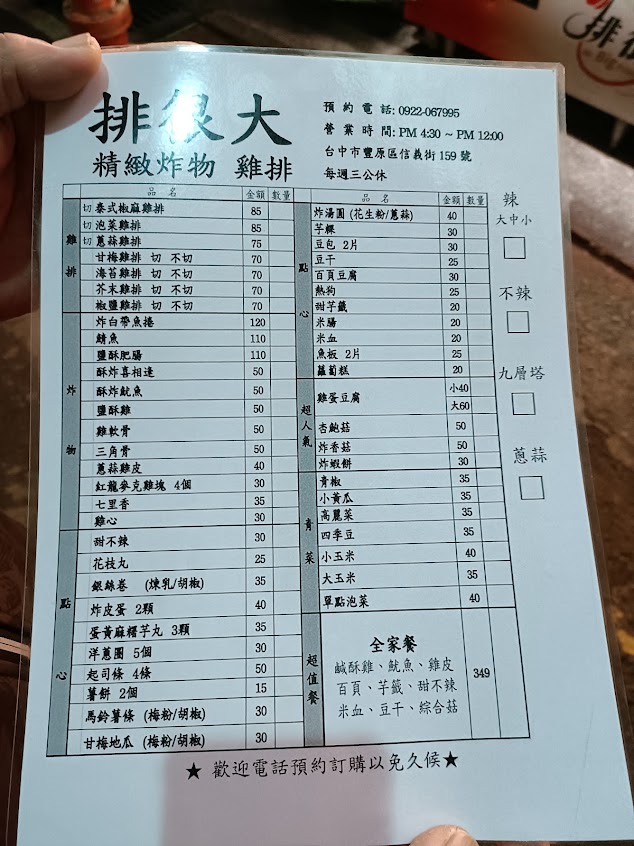 排很大
精緻炸物 雞排
預約電話: 0922-067995
營業時間: PM 4:30 ~ PM 12:00
台中市豐原區信義街 159 號
每週三公休
品名 金額 數量
雞排
切 泰式椒麻雞排 85
切 泡菜雞排 85
切 蔥蒜雞排 75
甘梅雞排 切 不切 70
海苔雞排 切 不切 70
芥末雞排 切 不切 70
椒鹽雞排 切 不切 70
炸物
炸白帶魚捲 120
鯖魚 110
鹽酥肥腸 110
酥炸喜相逢 50
酥炸魷魚 50
鹽酥雞 50
雞軟骨 50
三角骨 50
蔥蒜雞皮 40
紅龍麥克雞塊 4個 30
七里香 35
雞心 30
點心
甜不辣 30
花枝丸 25
銀絲卷 (煉乳/胡椒) 35
炸皮蛋 2顆 40
蛋黃麻糬芋丸 3顆 35
洋蔥圈 5個 30
起司條 4條 50
薯餅 2個 15
馬鈴薯條 (梅粉/胡椒) 30
甘梅地瓜 (梅粉/胡椒) 30
品名 金額 數量
點心
炸湯圓 (花生粉/蔥蒜) 40
芋粿 30
豆包 2片 30
豆干 25
百頁豆腐 30
熱狗 25
甜芋籤 20
米腸 20
米血 20
魚板 2片 25
蘿蔔糕 20
超人氣
雞蛋豆腐 小40
大60
杏鮑菇 50
炸香菇 50
炸蝦餅 30
青菜
青椒 35
小黃瓜 35
高麗菜 35
四季豆 35
小玉米 40
大玉米 35
單點泡菜 40
超值餐
全家餐
鹹酥雞、魷魚、雞皮
百頁、芋籤、甜不辣
米血、豆干、綜合菇
349
辣
大中小
不辣
九層塔
蔥蒜
★ 歡迎電話預約訂購以免久候★
排